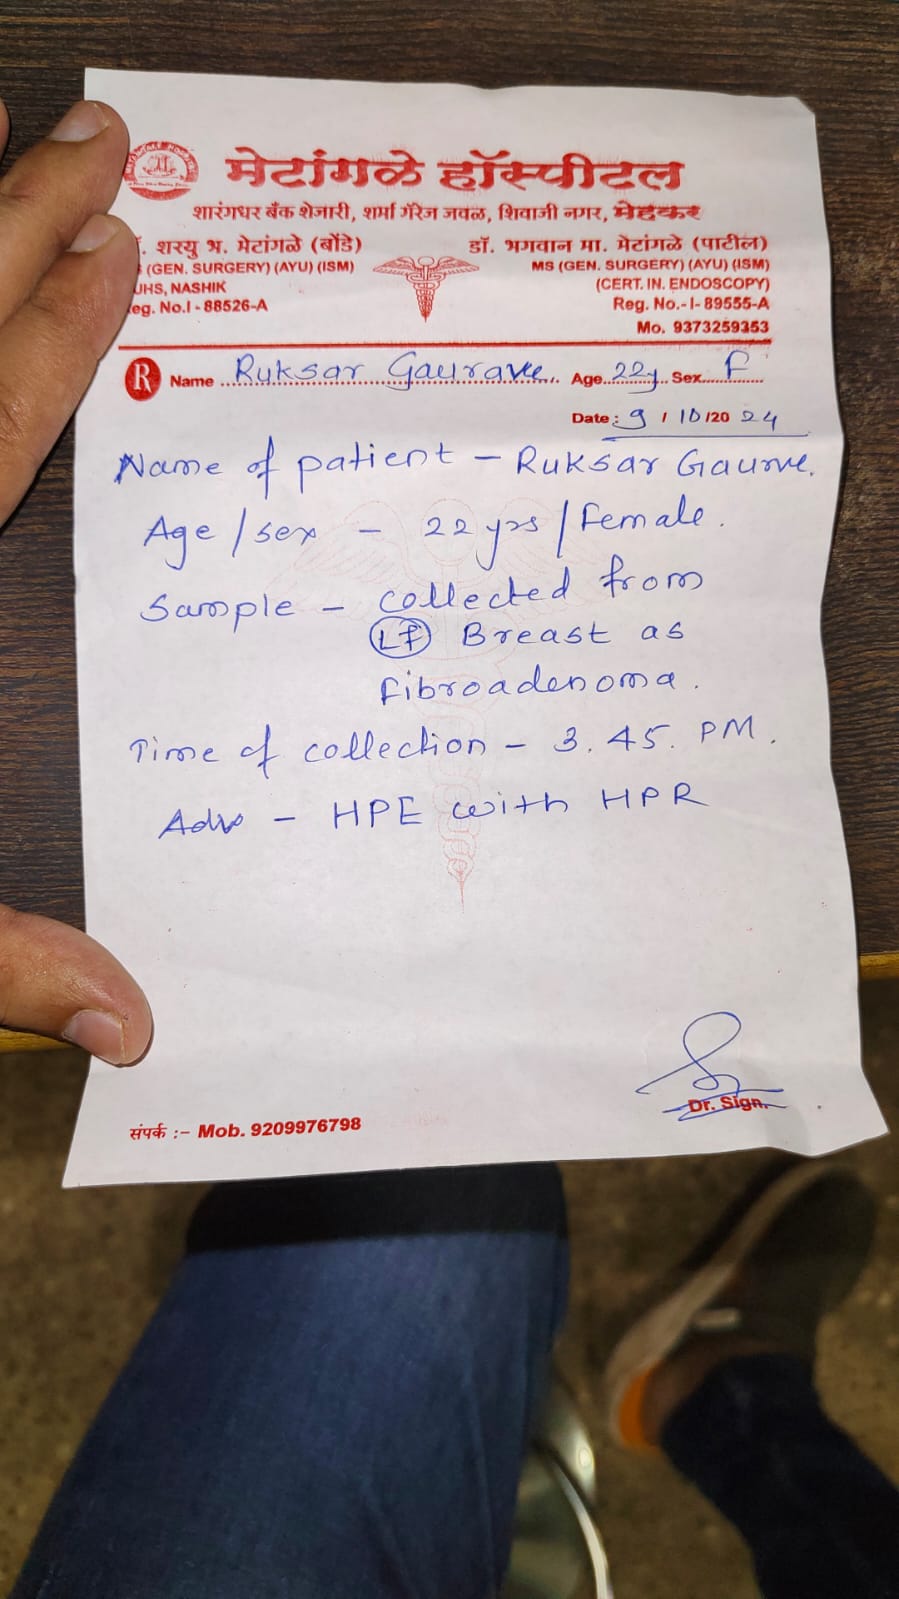 मेटांगळे हॉस्पीटल
शारंगधर बँक शेजारी, शर्मा गॅरेज जवळ, शिवाजी नगर, मेहकर
. शरयु भ. मेटांगळे (बोंडे)
(GEN. SURGERY) (AYU) (ISM)
UHS, NASHIK
eg. No.I - 88526-A
डॉ. भगवान मा. मेटांगळे (पाटील)
MS (GEN. SURGERY) (AYU) (ISM)
(CERT. IN. ENDOSCOPY)
Reg. No.-I- 89555-A
Mo. 9373259353
R Name Ruksar Gaurave Age 22y Sex F
Date : 9 / 10 /20 24
Name of patient - Ruksar Gaurve.
Age / sex - 22 yrs / Female.
Sample - collected from
LT Breast as
Fibroadenoma.
Time of collection - 3.45. PM.
Adv - HPE with HPR
Dr. Sign.
संपर्क :- Mob. 9209976798